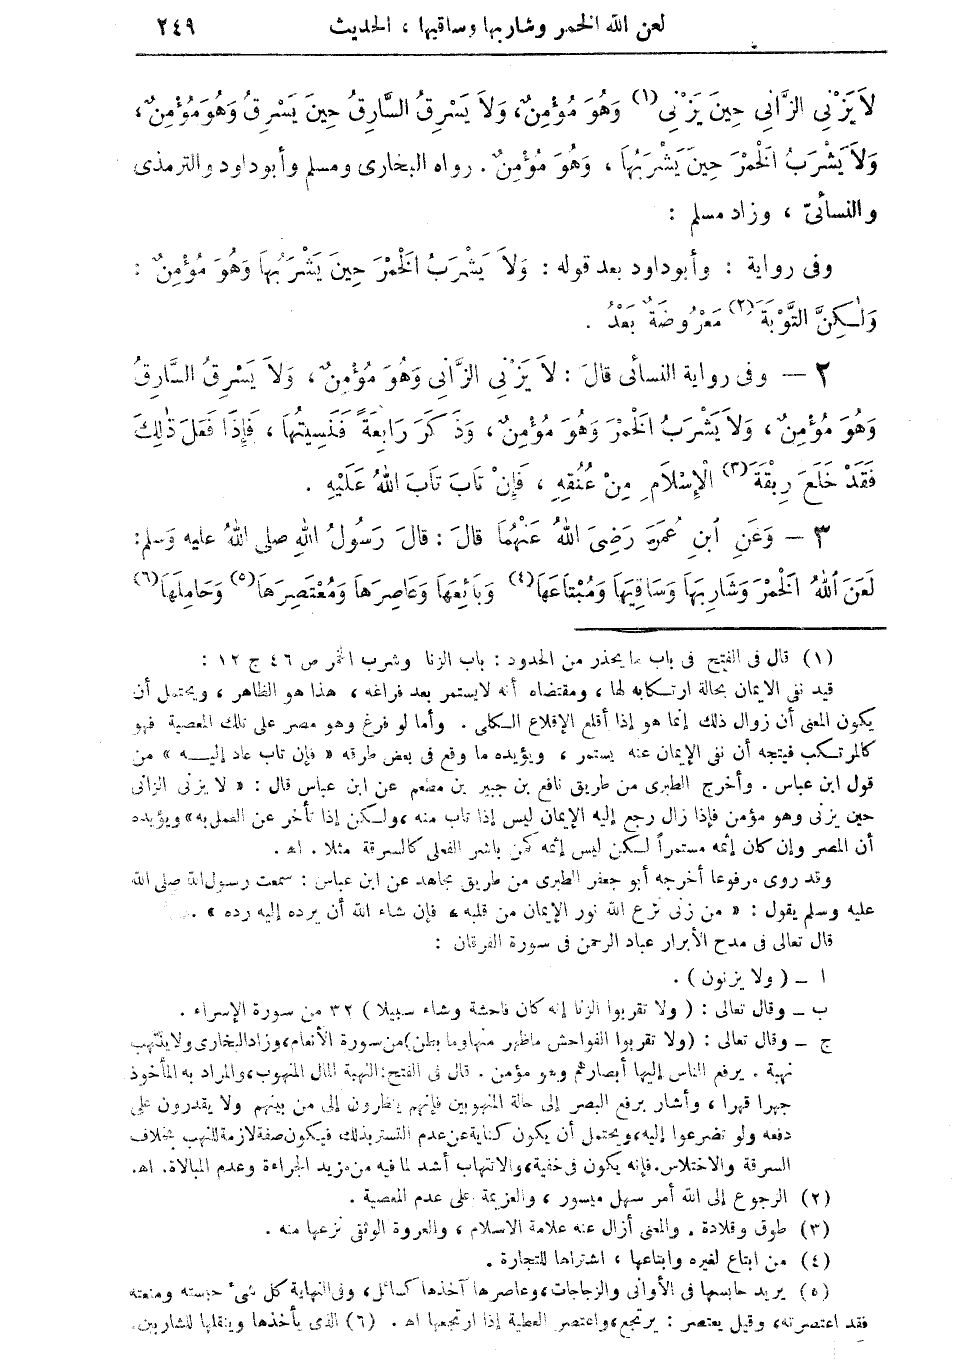 لعن الله الخمر وشاربها وساقيها ، الحديث ٢٤٩
لاَ يَزْنِي الزَّانِي حِينَ يَزْنِي(١) وَهُوَ مُؤْمِنٌ، وَلاَ يَسْرِقُ السَّارِقُ حِينَ يَسْرِقُ وَهُوَ مُؤْمِنٌ،
وَلاَ يَشْرَبُ الْخَمْرَ حِينَ يَشْرَبُهَا ، وَهُوَ مُؤْمِنٌ . رواه البخارى ومسلم وأبوداود والترمذى
والنسائىّ ، وزاد مسلم :
وفى رواية : وأبوداود بعد قوله : وَلاَ يَشْرَبُ الْخَمْرَ حِينَ يَشْرَبُهَا وَهُوَ مُؤْمِنٌ :
وَلَـكِنَّ التَّوْبَةَ(٢) مَعْرُوضَةٌ بَعْدُ .
٢ — وفى رواية النسائى قالَ : لاَ يَزْنِي الزَّانِي وَهُوَ مُؤْمِنٌ ، وَلاَ يَسْرِقُ السَّارِقُ
وَهُوَ مُؤْمِنٌ ، وَلاَ يَشْرَبُ الْخَمْرَ وَهُوَ مُؤْمِنٌ ، وَذَكَرَ رَابِعَةً فَنَسِيتُهَا ، فَإِذَا فَعَلَ ذٰلِكَ
فَقَدْ خَلَعَ رِبْقَةَ(٣) الْإِسْلَامِ مِنْ عُنُقِهِ ، فَإِنْ تَابَ تَابَ اللهُ عَلَيْهِ .
٣ — وَعَنِ ابْنِ عُمَرَ رَضِىَ اللهُ عَنْهُمَا قالَ : قالَ رَسُولُ اللهِ صلى اللهُ عليه وَسلم:
لَعَنَ اللهُ الْخَمْرَ وَشَارِبَهَا وَسَاقِيَهَا وَمُبْتَاعَهَا(٤) وَبَائِعَهَا وَعَاصِرَهَا وَمُعْتَصِرَهَا(٥) وَحَامِلَهَا(٦)
(١) قال فى الفتح فى باب ما يحذر من الحدود : باب الزنا وشرب الخمر ص ٤٦ ج ١٢ :
قيد نفى الايمان بحالة ارتكابه لها ، ومقتضاه أنه لا يستمر بعد فراغه ، هذا هو الظاهر ، ويحتمل أن
يكون المعنى أن زوال ذلك إنما هو إذا أقلع الإقلاع الكلى . وأما لو فرغ وهو مصر على تلك المعصية فهو
كالمرتكب فيتجه أن نفى الإيمان عنه يستمر ، ويؤيده ما وقع فى بعض طرقه « فإن تاب عاد إليـــه » من
قول ابن عباس . وأخرج الطبرى من طريق نافع بن جبير بن مطعم عن ابن عباس قال : « لا يزنى الزانى
حين يزنى وهو مؤمن فإذا زال رجع إليه الإيمان ليس إذا تاب منه ، ولكن إذا تأخر عن العمل به » ويؤيده
أن المصر وإن كان إثمه مستمراً لكن ليس إثمه كمن باشر الفعل كالسرقة مثلا . اهـ .
وقد روى مرفوعا أخرجه أبو جعفر الطبرى من طريق مجاهد عن ابن عباس : سمعت رسول الله صلى الله
عليه وسلم يقول : « من زنى نزع الله نور الإيمان من قلبه ، فإن شاء الله أن يرده إليه رده » .
قال تعالى فى مدح الأبرار عباد الرحمن فى سورة الفرقان :
ا — ( ولا يزنون ) .
ب — وقال تعالى : ( ولا تقربوا الزنا إنه كان فاحشة وساء سبيلا ) ٣٢ من سورة الإسراء .
ج — وقال تعالى : (ولا تقربوا الفواحش ماظهر منها وما بطن) من سورة الأنعام، وزاد البخارى ولا ينتهب
نهبة . يرفع الناس إليها أبصارهم وهو مؤمن . قال فى الفتح: النهبة المال المنهوب، والمراد به المأخوذ
جهرا قهرا ، وأشار برفع البصر إلى حالة المنهوبين فإنهم ينظرون إلى من ينهبهم ولا يقدرون على
دفعه ولو تضرعوا إليه، ويحتمل أن يكون كناية عن عدم التستر بذلك، فيكون صفة لازمة للنهب بخلاف
السرقة والاختلاس. فإنه يكون فى خفية، والانتهاب أشد لما فيه من مزيد الجراءة وعدم المبالاة. اهـ.
(٢) الرجوع إلى الله أمر سهل ميسور ، والعزيمة على عدم المعصية .
(٣) طوق وقلادة . والمعنى أزال عنه علامة الاسلام ، والعروة الوثقى نزعها منه .
(٤) من ابتاع لغيره وابتاعها ، اشتراها للتجارة .
(٥) يريد حابسها فى الأوانى والزجاجات، وعاصرها آخذها كسائل، وفى النهاية كل شىء حبسته ومنعته
فقد اعتصرته، وقيل يعتصر : يرتجع، واعتصر العطية إذا ارتجعها اهـ . (٦) الذى يأخذها وينقلها للشاربين.